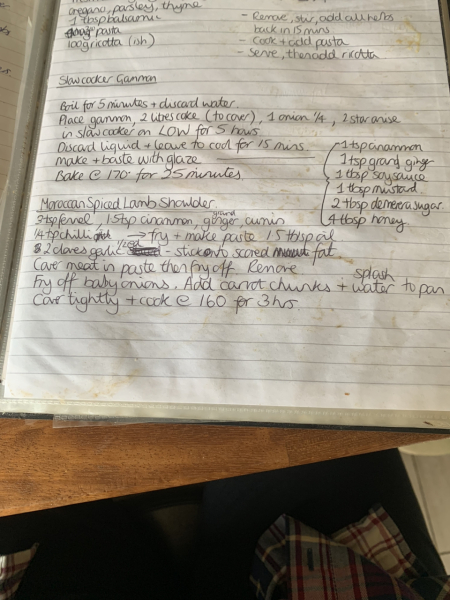 oregano, parsley, thyme
1 tbsp balsamic
pasta
100g ricotta (ish)
- Remove, stir, add all herbs
back in 15 mins
- Cook + add pasta
- Serve, then add ricotta
Slow cooker Gammon
Boil for 5 minutes + discard water.
Place gammon, 2 litres coke (to cover), 1 onion 1/4, 2 star anise
in slow cooker on LOW for 5 hours.
Discard liquid + leave to cool for 15 mins
make + baste with glaze
Bake @ 170° for 25 minutes
1 tsp cinammon
1 tsp grand ginger
1 tbsp soy sauce
1 tbsp mustard
2 tbsp demerera sugar
4 tbsp honey
Moroccan Spiced Lamb Shoulder.
2tsp fenel, 1.5tsp cinanmon, ground ginger, cumin
1/4 tsp chilli → fry + make paste 1.5 tbsp oil
2 cloves garlic sliced - stick onto scored fat.
Cover meat in paste then fry off. Remove
Fry off baby onions. Add carrot chunks + splash water to pan
Cover tightly + cook @ 160 for 3 hrs.